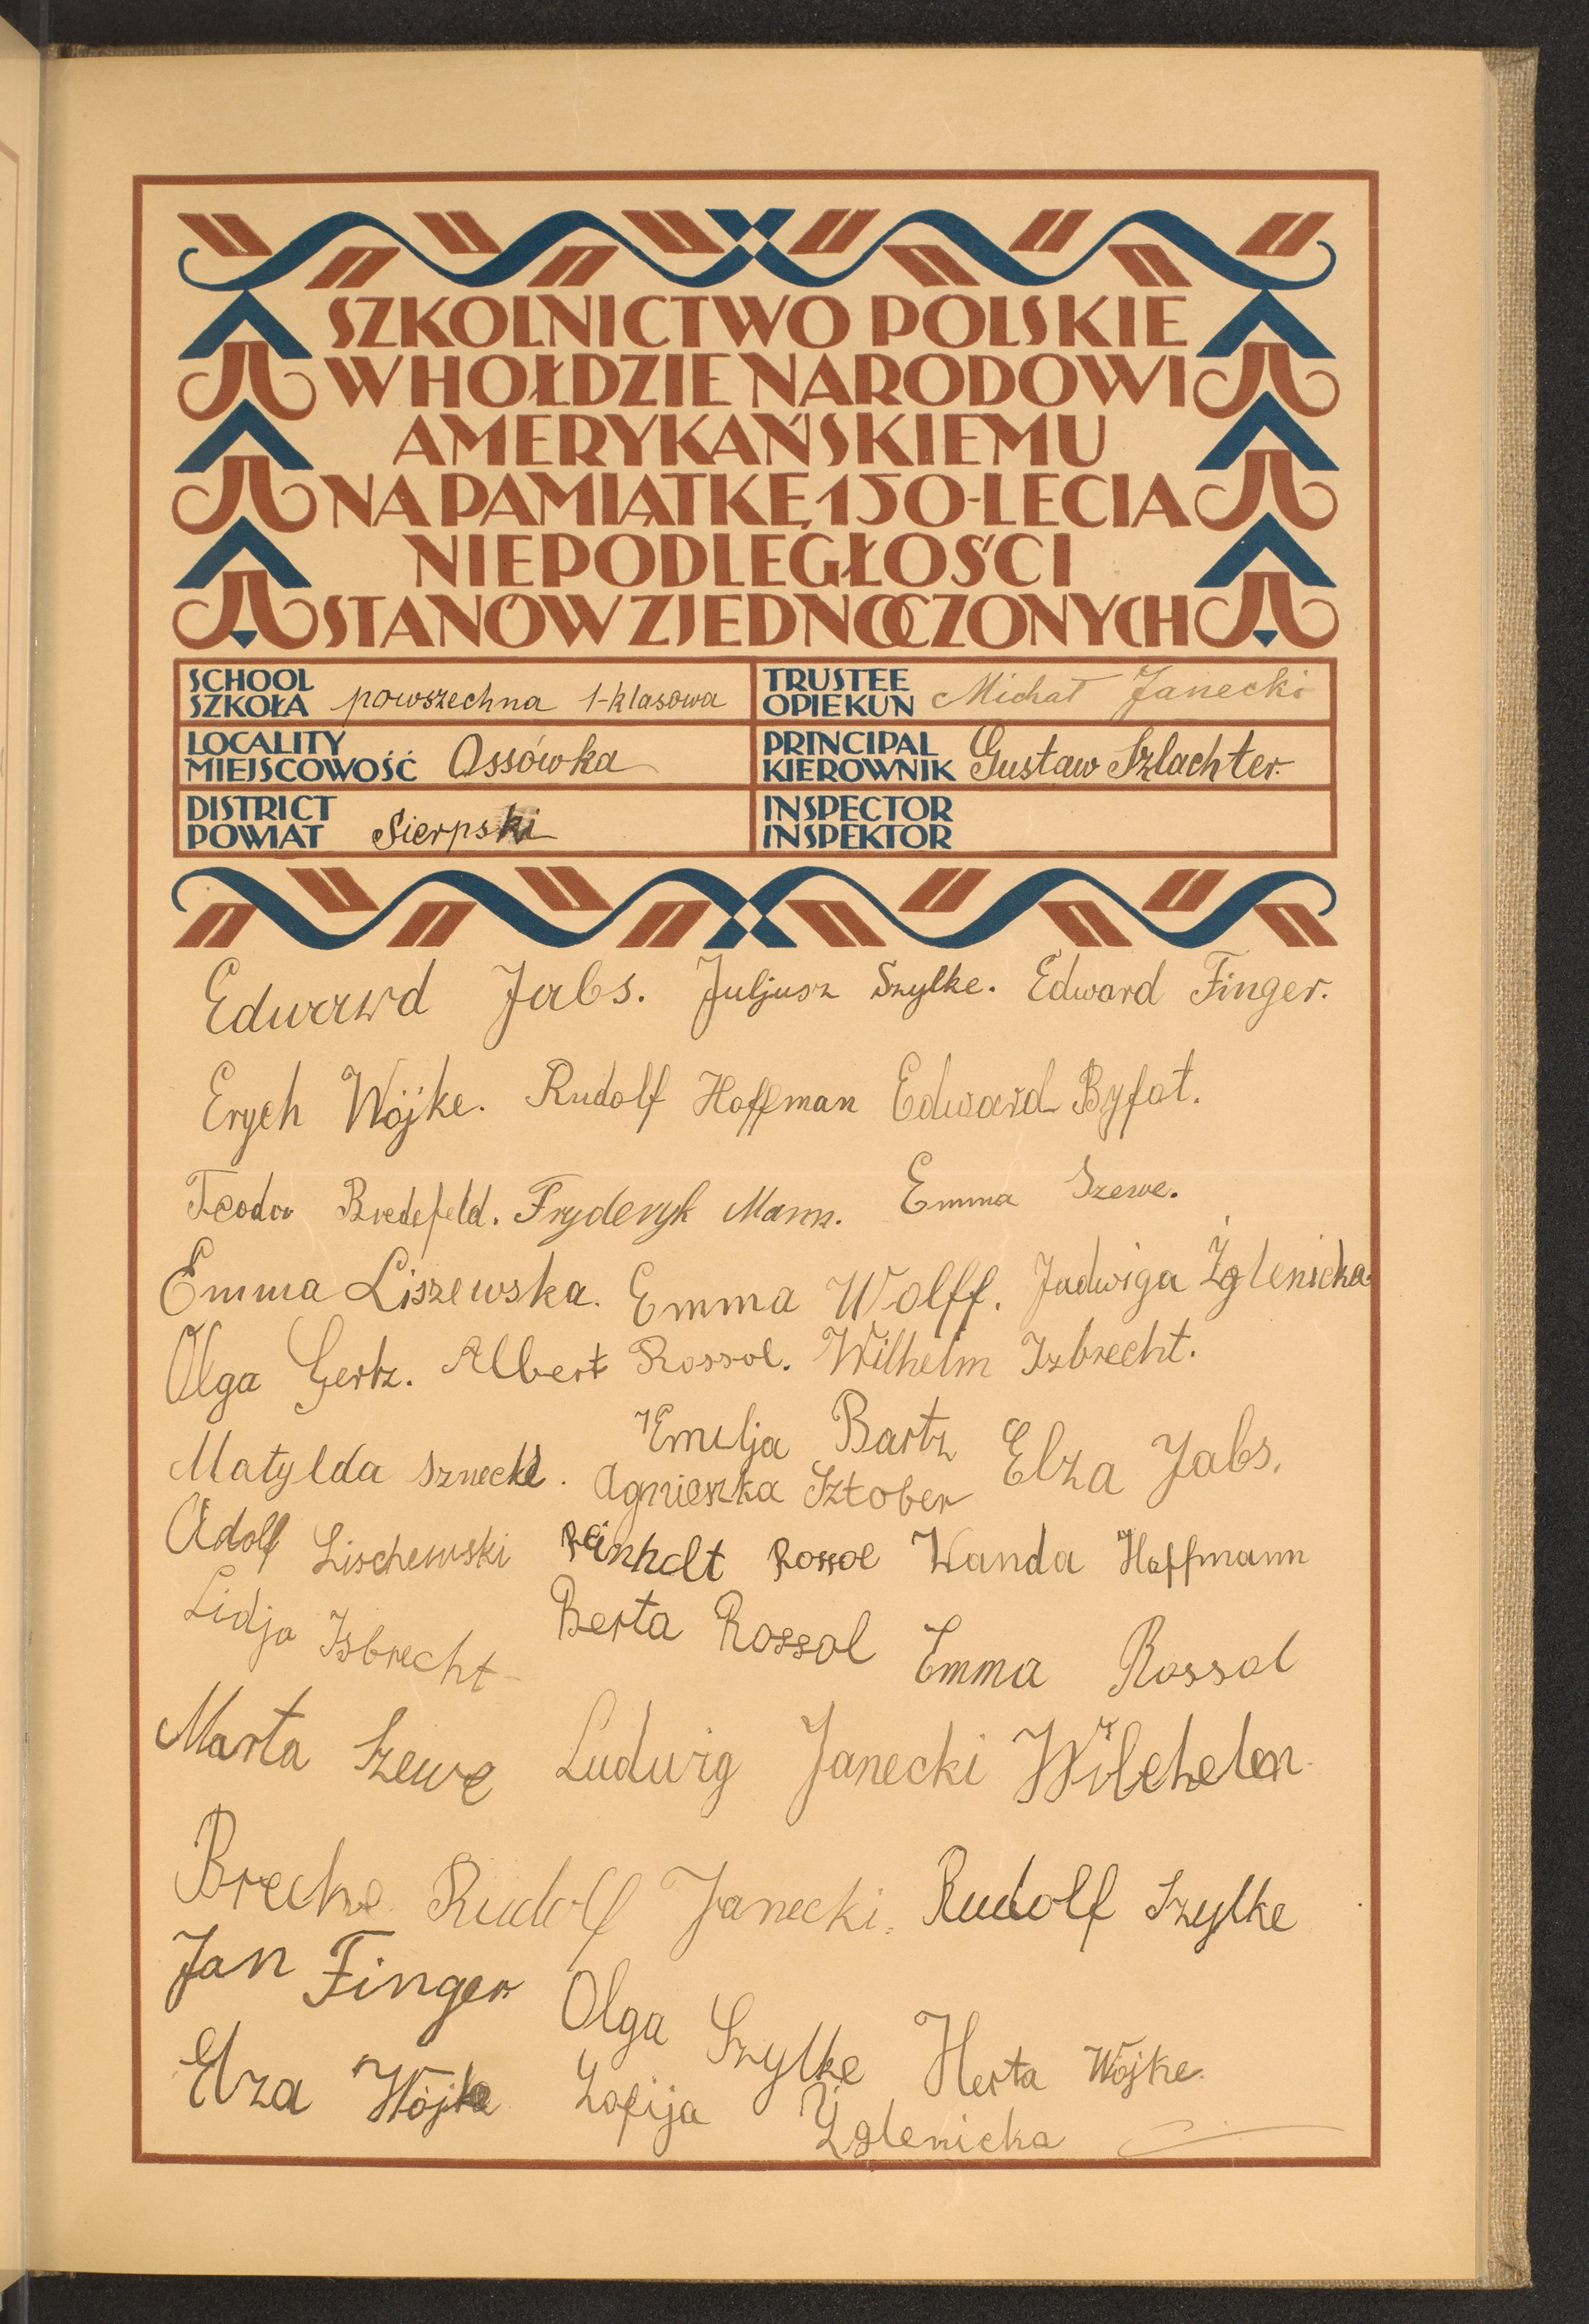 SZKOLNICTWO POLSKIE
W HOŁDZIE NARODOWI
AMERYKAŃSKIEMU
NA PAMIĄTKĘ 150-LECIA
NIEPODLEGŁOŚCI
STANÓW ZJEDNOCZONYCH
SCHOOL
SZKOŁA powszechna 1-klasowa
TRUSTEE
OPIEKUN Michał Janecki
LOCALITY
MIEJSCOWOŚĆ Ossówka
PRINCIPAL
KIEROWNIK Gustaw Szlachter.
DISTRICT
POWIAT Sierpski
INSPECTOR
INSPEKTOR
Edwarwd Jabs. Juljusz Szylke. Edward Finger.
Erych Wójke. Rudolf Hoffman Edward Byfat.
Teodor Bredefeld. Fryderyk Mann. Emma Szewe.
Emma Liszewska. Emma Wolff. Jadwiga Żglenicka
Olga Gertz. Albert Rossol. Wilhelm Izbrecht.
Emilja Bartz Elza Jabs.
Matylda Sznecke. Agnieszka Sztober
Adolf Lischewski Reinholt Rossol Wanda Hoffmann
Lidja Isbrecht Berta Rossol Emma Rossol
Marta Szewe Ludwig Janecki Wilchelm
Breche Rudolf Janecki. Rudolf Szylke
Jan Finger Olga Szylke Herta Wojke.
Elza Wójke Zofija Żglenicka